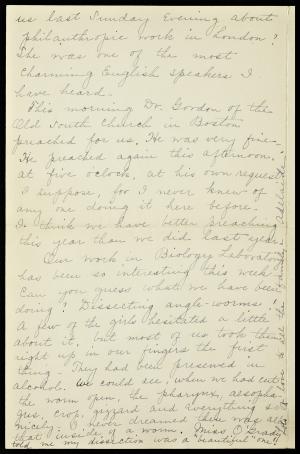 us last Sunday Evening about
philanthropic work in London!
She was one of the most
charming English speakers I
have heard.
This morning Dr. Gordon of the
Old South Church in Boston
preached for us. He was very fine.
He preached again this afternoon
at five oclock, at his own request
I suppose, for I never knew of
any one doing it here before.
I think we have better preaching
this year than we did last year.
Our work in Biology Laboratory
has been so interesting this week
Can you guess what we have been
doing? Dissecting angle-worms!
A few of the girls hesitated a little
about it, but most of us took them
right up in our fingers the first
thing. They had been preserved in
alcohol. We could see, when we had cut
the worm open, the pharynx, aesopha-
gus, crop, gizzard and everything so
nicely. I never dreamed there was all
that inside of a worm. Miss O'Grady
told me my dissection was a "beautiful" one!
Adelaide